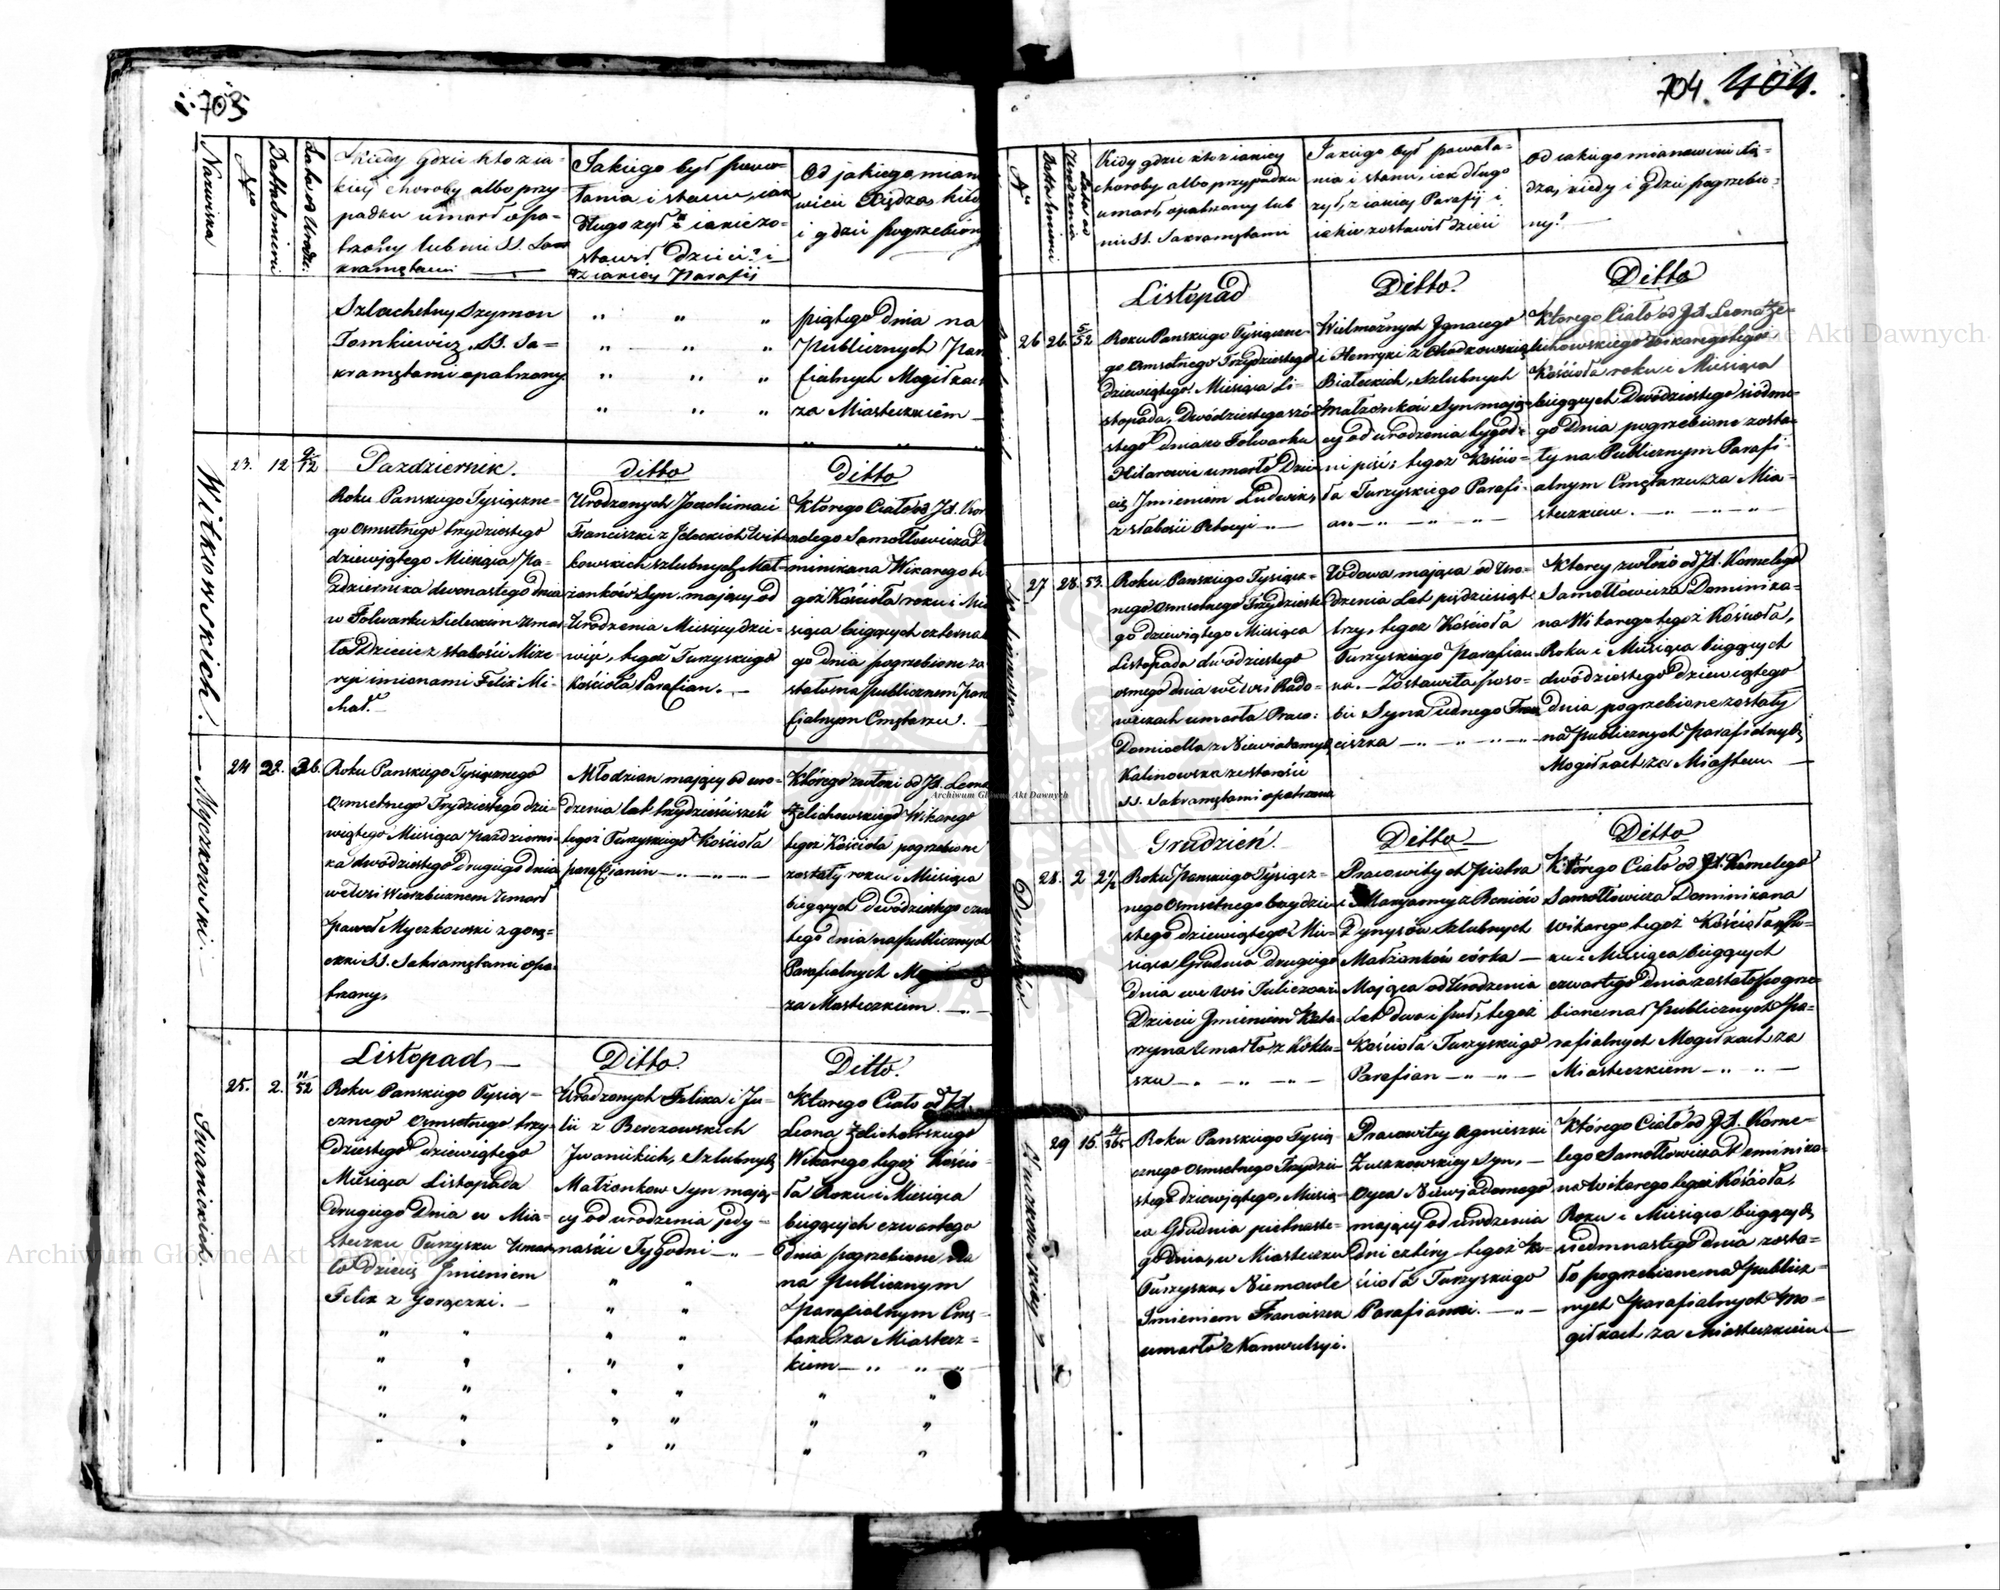 703
Nazwiska
Nro
Datta śmierci
Lata od Urodz:
Kiedy gdzie kto z ja-
kiey choroby albo przy-
padku umarł opa-
trzony lub nie SS. Sa-
kramętami
Jakiego był powo-
łania i stanu, jak
długo żył i jakie zo-
stawił dzieci? i
z iakiey Parafij
Od jakiego miano-
wicie Xiędza, kiedy
i gdzie pogrzebiony
Szlachetny Szymon
Tomkiewicz SS. Sa-
kramętami opatrzony
piątego Dnia na
Publicznych Para-
fialnych Mogiłkach
za Miasteczkiem
Witkowskich.
23. 12 9/12
Pazdziernik.
Roku Panskiego Tysiączne-
go Osmsetnego trzydziestego
dziewiątego Miesiąca Pa-
zdziernika dwonastego dnia
w Folwarku Sieleckim umar-
ło Dziecie z słabości Mize-
ryi imionami Felix Mi-
chał.
Ditto
Urodzonych Joachima i
Franciszki z Jeleckich Wit-
kowskich szlubnych Mał-
żonków Syn, mający od
Urodzenia Miesięcy dzie-
więc, tegoż Turzyskiego
Kościoła Parafian.
Ditto
Którego Ciało od Jx. Kor-
nelego Samotłowicza Do-
minikana Wikarego te-
goż Kościoła roku i Mie-
siąca bieżących czterna-
go dnia pogrzebione zo-
stało na publicznem Para-
fialnym Cmętarzu.
Myczkowski.
24 22. 36.
Roku Panskiego Tysiącznego
Osmsetnego Trzydziestego dzie-
wiątego Miesiąca Pazdzierni-
ka dwódziestego drugiego dnia
we Wsi Wierzbicznem Umarł
Paweł Myczkowski z gorą-
czki SS. Sakramętami opa-
trzony,
Młodzian mający od uro-
dzenia lat trzydzieści sześć
tegoż Turzyskiego Kościoła
parafianin
Którego zwłoki od Jx. Leona
Żelichowskiego Wikarego
tegoż Kościoła pogrzebione
zostały roku i Miesiąca
bieżących dwódziestego czwar-
tego dnia na publicznych
Parafialnych
za Miasteczkiem
Iwanickich.
25. 2. 11/52
Listopad
Roku Panskiego Tysią-
cznego Osmsetnego trzy-
dziestego dziewiątego
Miesiąca Listopada
drugiego Dnia w Mia-
steczku Turzysku Umar-
ło dziecię Imieniem
Felix z Gorączki.
Ditto.
Urodzonych Felixa i Ju-
lii z Berezowskich
Iwanickich, Szlubnych
Małżonkow Syn mają-
cy od urodzenia jedy-
naście Tygodni
Ditto.
Którego Ciało od Jx.
Leona Żelichowskiego
Wikarego tegoż Kościo-
ła Roku i Miesiąca
bieżących czwartego
dnia pogrzebione
na publicznym
parafialnym Cmę-
tarzu za Miastecz-
kiem
704. 404.
Nro
Datta śmierci
Lata od Urodzenia
Kiedy gdzie kto z iakiey
choroby albo przypadku
umarł, opatrzony lub
nie SS. Sakramętami
Jakiego był powoła-
nia i stanu, jak długo
żył, z iakiey Parafij i
iakie zostawił dzieci
Od iakiego mianowicie Xię-
dza, kiedy i gdzie pogrzebio-
ny?
26 26. 5/52
Listopad
Roku Panskiego Tysiączne-
go Osmsetnego Trzydziestego
dziewiątego Miesiąca Li-
stopada, Dwódziestego szó-
stego dnia na Folwarku
Hilarowie umarło Dzie-
cię Imieniem Ludwik,
z słabości
Ditto.
Wielmożnych Ignacego
i Henryki z Chodkowskich
Białeckich, Szlubnych
małżonków Syn mają-
cy od urodzenia tygod-
ni pięć; tegoż Kościo-
ła Turzyskiego Parafi-
an
Ditto
Ktorego Ciało od Jx. Leona Że-
lichowskiego Wikarego tegoż
Kościoła roku i Miesiąca
bieżących Dwódziestego siódme-
go Dnia pogrzebione zosta-
ły na Publicznym Parafi-
alnym Cmętarzu za Mia-
steczkiem
Kalinowska
27 28. 53.
Roku Panskiego Tysiącz-
nego Osmsetnego Trzydzieste-
go dziewiątego Miesiąca
Listopada dwódziestego
osmego dnia we Wsi Rado-
wiczach umarła Praco:
Domicella z Niewiadomych
Kalinowska ze starości
SS. Sakramętami opatrzona
Wdowa mająca od Uro-
dzenia Lat pięćdziesiąt
trzy, tegoż Kościoła
Turzyskiego Parafian-
na. Zostawiła poso-
bie Syna iednego Fran-
ciszka
Ktorey zwłoki od Jx. Kornelego
Samotłowicza Dominika-
na Wikarego tegoż Kościoła,
Roku i Miesiąca bieżących
dwódziestego dziewiątego
dnia pogrzebione zostały
na publicznych Parafialnych
Mogiłkach za Miastem
Dynysów
28. 2 2 1/2
Grudzień.
Roku Panskiego Tysiącz-
nego Osmsetnego trzydzie-
stego dziewiątego Mie-
siąca Grudnia drugiego
Dnia we Wsi Tuliczowie
Dziecie Imieniem Kata-
rzyna Umarło z Koklu-
szu
Ditto
Pracowitych Piotra
i Maryanny z Beniów
Dynysów Szlubnych
Małżonków córka
Mająca od Urodzenia
Lat dwa i puł, tegoż
Kościoła Turzyskiego
Parafian
Ditto
Którego Ciało od Jx. Kornelego
Samotłowicza Dominikana
Wikarego tegoż Kościoła Ro-
ku i Miesiąca bieżących
czwartego dnia zostało pogrze-
bione na Publicznych Pa-
rafialnych Mogiłkach za
Miasteczkiem
Zuczkowskiey
29 15. 4/365
Roku Panskiego Tysią-
cznego Osmsetnego Trzydzie-
stego dziewiątego, Miesią-
ca Grudnia pietnaste-
go dnia, w Miasteczku
Turzysku, Niemowle
Imieniem Franciszek
umarło z Konwulsyi.
Pracowitey Agnieszki
Zuczkowskiey Syn,
Oyca Niewjadomego
mający od urodzenia
dni cztéry tegoż Ko-
ścioła Turzyskiego
Parafianki.
Którego Ciało od Jx. Korne-
lego Samotłowicza Dominika-
na Wikarego tegoż Kościoła,
Roku i Miesiąca bieżących
siedmnastego dnia zosta-
ło pogrzebione na Publicz-
nych Parafialnych Mo-
giłkach za Miasteczkiem
Archiwum Główne Akt Dawnych
Archiwum Główne Akt Dawnych
Archiwum Główne Akt Dawnych